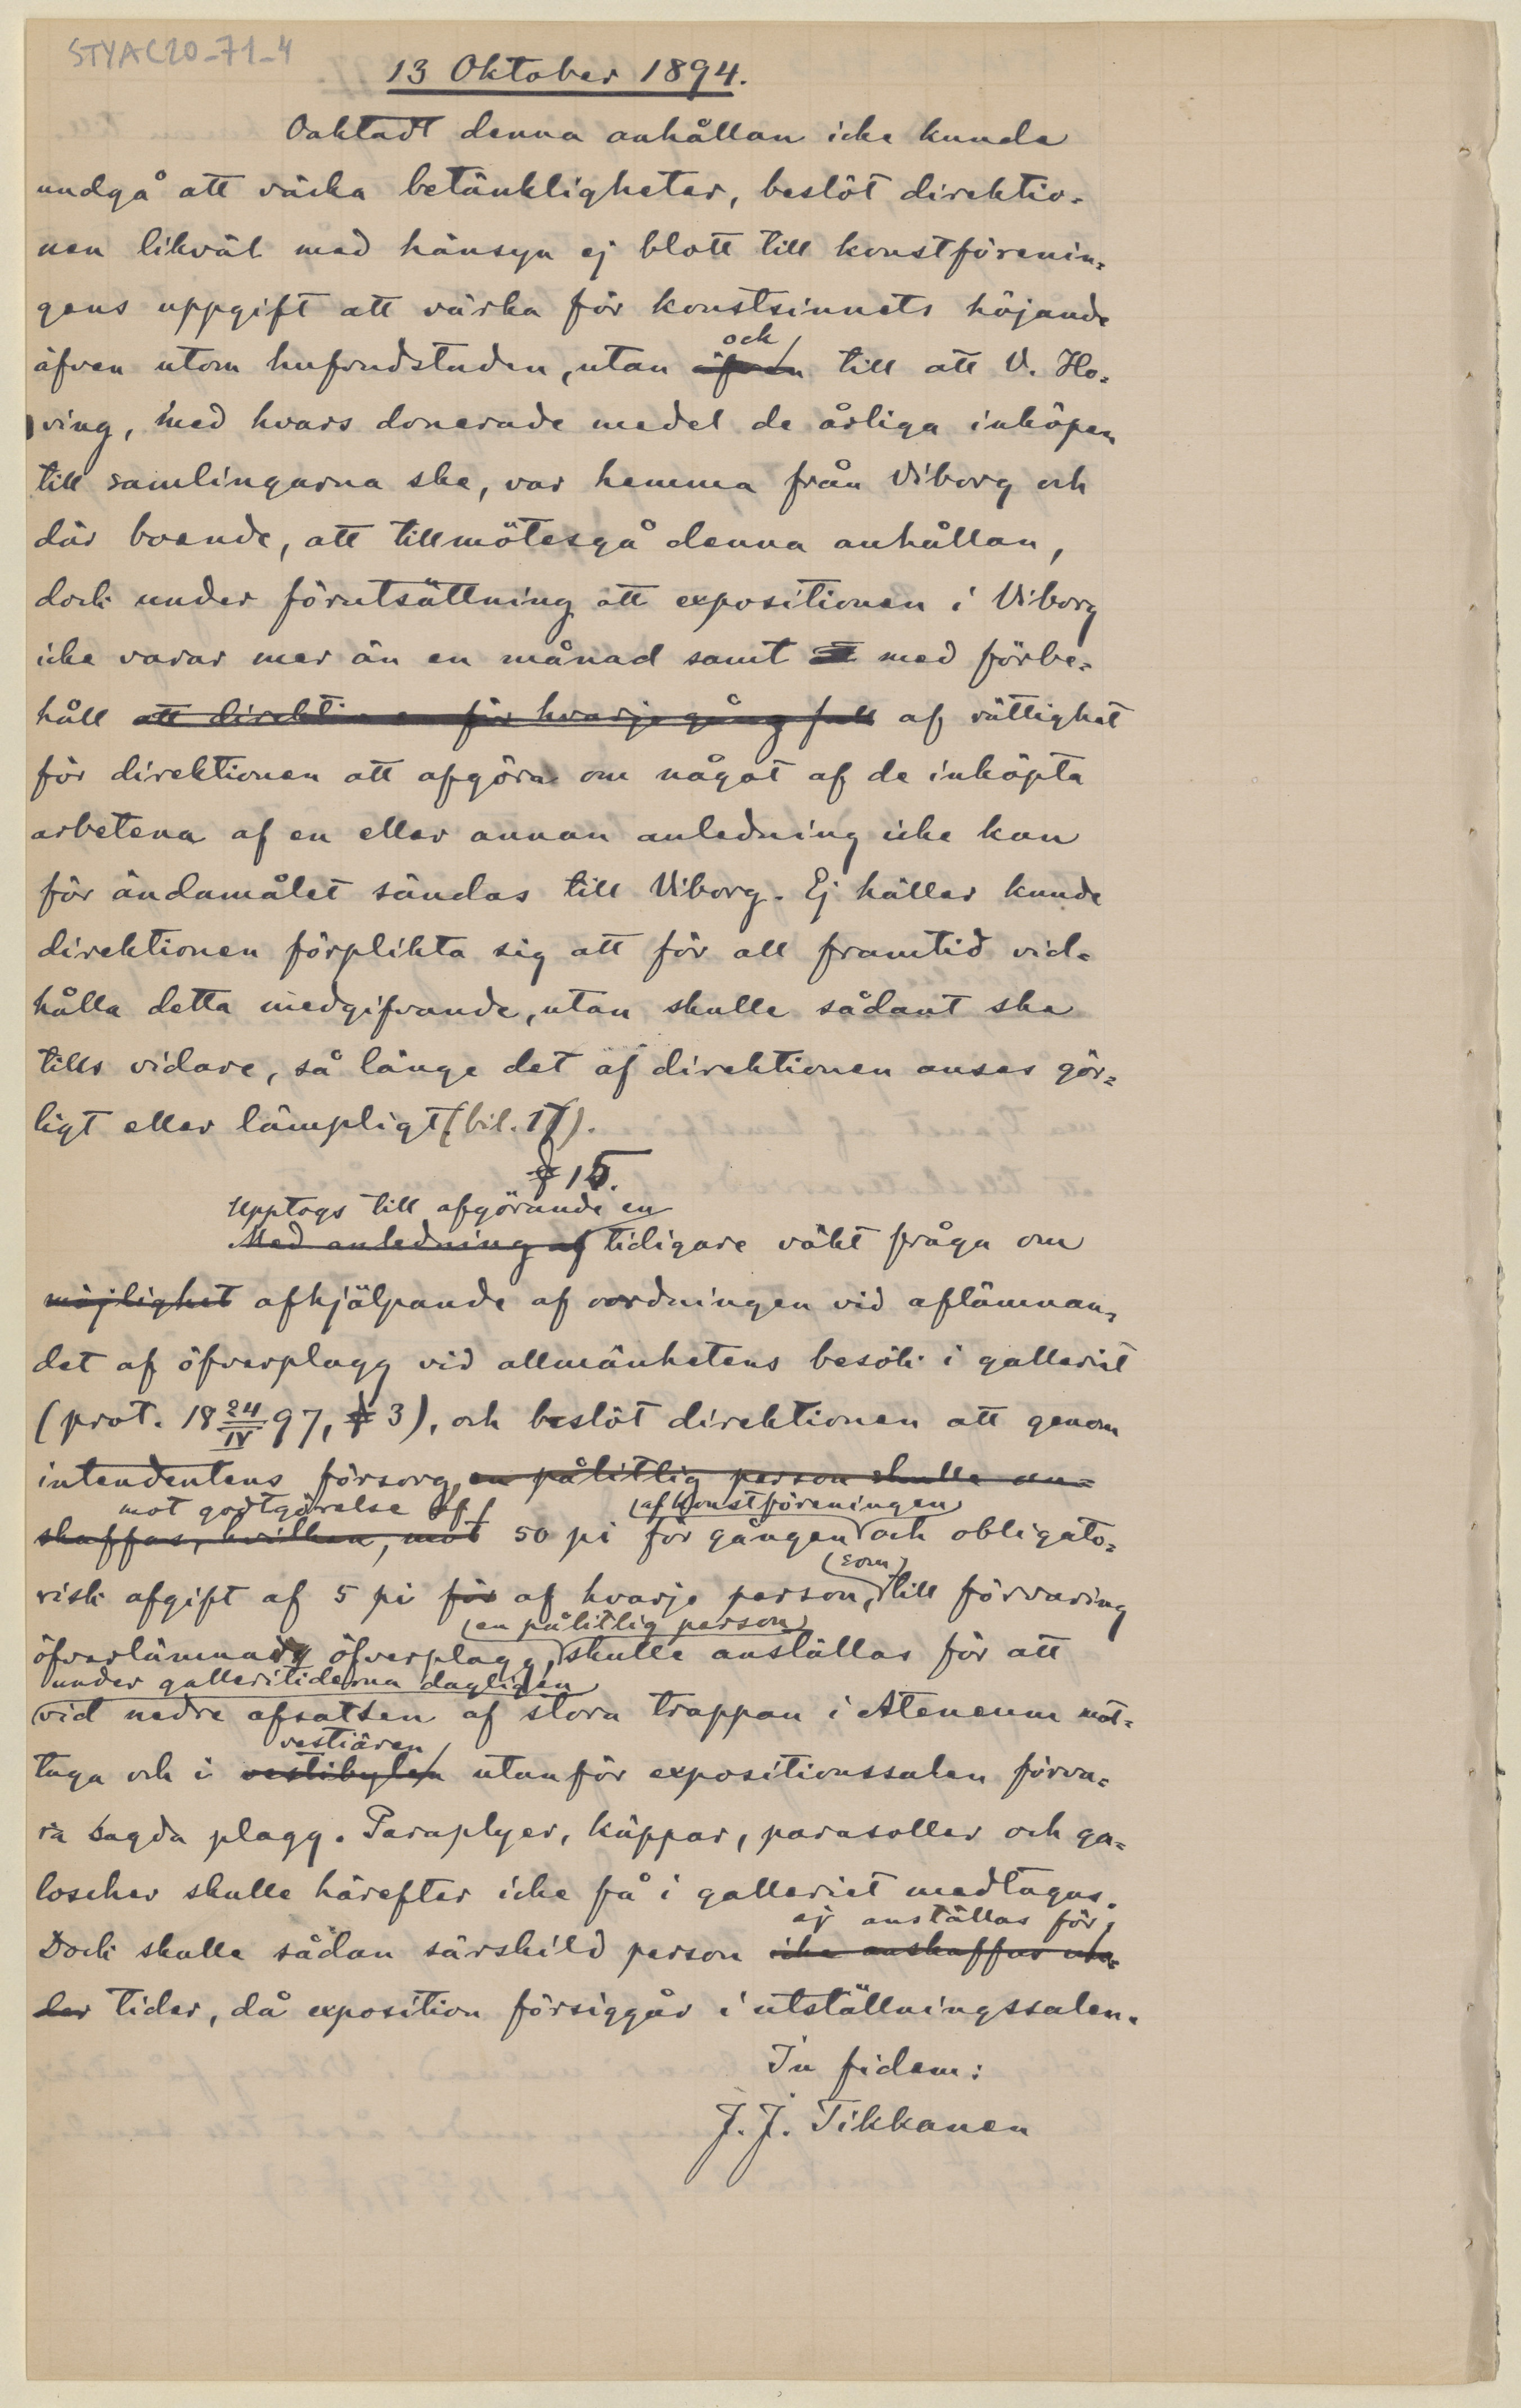 STYAC20-71-4
13 Oktober 1894.
Oaktadt denna anhållan icke kunde
undgå att väcka betänkligheter, beslöt direktio-
nen likväl med hänsyn ej blott till konstförenin-
gens uppgift att värka för konstsinnets höjande
äfven utom hufvudstaden, utan äfven och till att V. Ho-
ving, med hvars donerade medel de årliga inköpen
till samlingarna ske, var hemma från Viborg och
där boende, att tillmötesgå denna anhållan,
dock under förutsättning att expositionen i Viborg
icke varar mer än en månad samt att med förbe-
håll att direktionen för hvarje gång fall af rättighet
för direktionen att afgöra om något af de inköpta
arbetena af en eller annan anledning icke kan
för ändamålet sändas till Viborg. Ej häller kunde
direktionen förplikta sig att för all framtid vid-
hålla detta medgifvande, utan skulle sådant ske
tills vidare, så länge det af direktionen anses gör-
ligt eller lämpligt (bil. 17).
§ 15.
Upptogs till afgörande en
Med anledning af tidigare väkt fråga om
möjlighet afhjälpande af oordningen vid aflämnan-
det af öfverplagg vid allmänhetens besök i galleriet
(prot. 18 24/IV 97, § 3), och beslöt direktionen att genom
intendentens försorg, en pålitlig person skulle an-
mot godtgörelse af (af konstföreningen)
skaffas, hvilken, mot 50 pi för gången och obligato-
(som)
risk afgift af 5 pi för af hvarje person, till förvaring
(en pålitlig person)
öfverlämnadt öfverplagg, skulle anställas för att
under galleritiderna dagligen
vid nedre afsatsen af stora trappan i Ateneum mot-
vestiären
taga och i vestibylen utanför expositionssalen förva-
ra sagda plagg. Paraplyer, käppar, parasoller och ga-
loscher skulle härefter icke få i galleriet medtagas.
ej anställas för
Dock skulle sådan särskild person icke anskaffas un-
der tider, då exposition försiggår i utställningssalen.
In fidem:
J. J. Tikkanen